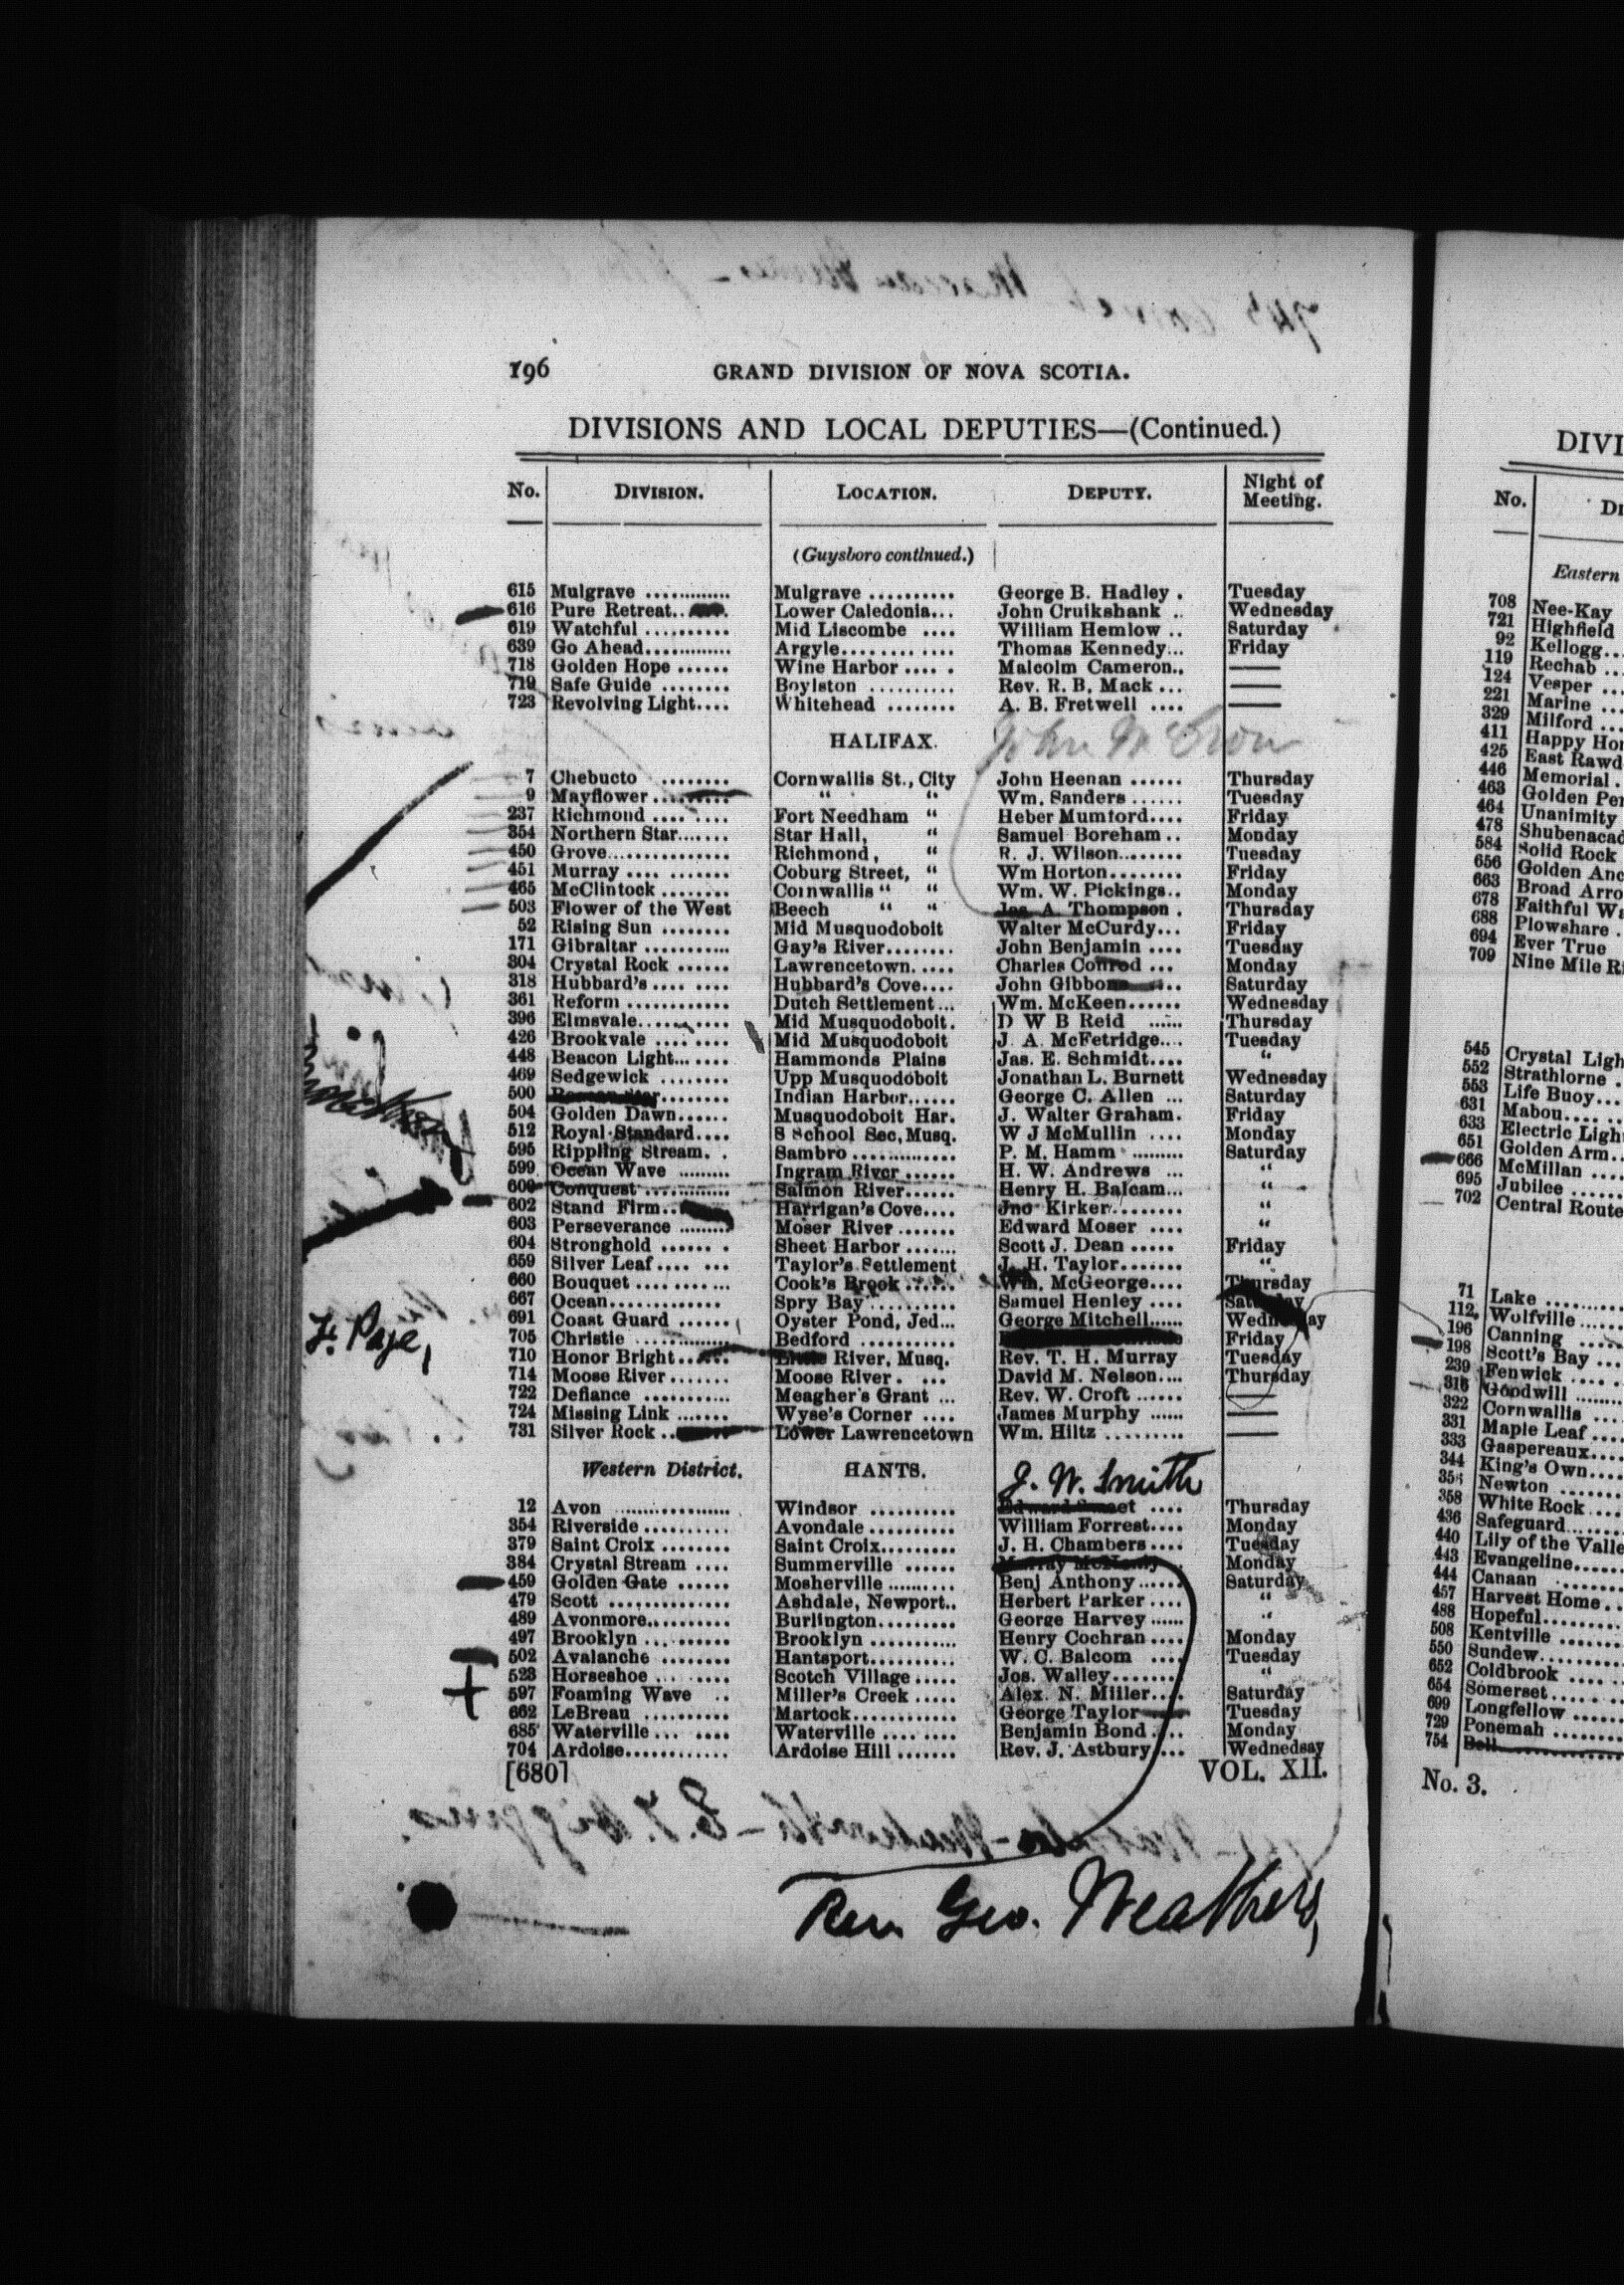 196 GRAND DIVISION OF NOVA SCOTIA.
DIVISIONS AND LOCAL DEPUTIES—(Continued.)
No. DIVISION. LOCATION. DEPUTY. Night of Meeting.
(Guysboro continued.)
615 Mulgrave ............ Mulgrave .......... George B. Hadley . Tuesday
616 Pure Retreat.. Lower Caledonia... John Cruikshank .. Wednesday
619 Watchful .......... Mid Liscombe .... William Hemlow .. Saturday
639 Go Ahead............ Argyle............ Thomas Kennedy... Friday
718 Golden Hope ...... Wine Harbor ..... Malcolm Cameron.. ——
719 Safe Guide ........ Boylston .......... Rev. R. B. Mack ... ——
723 Revolving Light.... Whitehead ........ A. B. Fretwell .... ——
HALIFAX.
John
7 Chebucto ........ Cornwallis St., City John Heenan ...... Thursday
9 Mayflower .... “ “ Wm. Sanders ...... Tuesday
237 Richmond ........ Fort Needham “ Heber Mumford.... Friday
354 Northern Star....... Star Hall, “ Samuel Boreham .. Monday
450 Grove.............. Richmond, “ R. J. Wilson........ Tuesday
451 Murray .... ....... Coburg Street, “ Wm Horton........ Friday
465 McClintock ........ Cornwallis “ “ Wm. W. Pickings.. Monday
503 Flower of the West Beech “ “ Jos. A. Thompson . Thursday
52 Rising Sun ........ Mid Musquodoboit Walter McCurdy... Friday
171 Gibraltar ........... Gay's River........ John Benjamin .... Tuesday
304 Crystal Rock ...... Lawrencetown..... Charles Conrod ... Monday
318 Hubbard's .... .... Hubbard's Cove.... John Gibbons Saturday
361 Reform ............ Dutch Settlement... Wm. McKeen...... Wednesday
396 Elmsvale........... Mid Musquodoboit. D W B Reid ...... Thursday
426 Brookvale .... .... Mid Musquodoboit J. A. McFetridge.... Tuesday
448 Beacon Light... .... Hammonds Plains Jas. E. Schmidt.... “
469 Sedgewick ........ Upp Musquodoboit Jonathan L. Burnett Wednesday
500 Indian Harbor...... George C. Allen ... Saturday
504 Golden Dawn...... Musquodoboit Har. J. Walter Graham. Friday
512 Royal Standard.... S School Sec, Musq. W J McMullin .... Monday
595 Rippling Stream. . Sambro ............. P. M. Hamm ......... Saturday
599 Ocean Wave ......... Ingram River ...... H. W. Andrews ... “
600 Conquest ............ Salmon River...... Henry H. Balcam... “
602 Stand Firm.. Harrigan's Cove.... Jno Kirker......... “
603 Perseverance ......... Moser River ....... Edward Moser .... “
604 Stronghold ...... . Sheet Harbor ....... Scott J. Dean ..... Friday
659 Silver Leaf.... ... Taylor's Settlement J. H. Taylor....... “
660 Bouquet ........... Cook's Brook ...... Wm. McGeorge.... Thursday
667 Ocean............. Spry Bay .......... Samuel Henley .... Saturday
691 Coast Guard ...... Oyster Pond, Jed... George Mitchell...... Wednesday
705 Christie ............. Bedford ........... Friday
710 Honor Bright... River, Musq. Rev. T. H. Murray Tuesday
714 Moose River ....... Moose River . ... David M. Nelson.... Thursday
722 Defiance ........... Meagher's Grant ... Rev. W. Croft ...... ——
724 Missing Link ....... Wyse's Corner .... James Murphy ...... ——
731 Silver Rock .. Lower Lawrencetown Wm. Hiltz .......... ——
Western District. HANTS. J. W. Smith
12 Avon .................. Windsor .......... Thursday
354 Riverside .......... Avondale .......... William Forrest.... Monday
379 Saint Croix ........ Saint Croix......... J. H. Chambers .... Tuesday
384 Crystal Stream .... Summerville ...... Monday
459 Golden Gate ...... Mosherville .......... Benj Anthony...... Saturday
479 Scott .............. Ashdale, Newport.. Herbert Parker .... “
489 Avonmore.......... Burlington......... George Harvey ...... “
497 Brooklyn .......... Brooklyn ........... Henry Cochran .... Monday
502 Avalanche ........ Hantsport.......... W. C. Balcom .... Tuesday
523 Horseshoe ... .... Scotch Village ..... Jos. Walley........ “
597 Foaming Wave .. Miller's Creek ..... Alex. N. Miller.... Saturday
662 LeBreau .......... Martock............ George Taylor Tuesday
685 Waterville ... .... Waterville ........ Benjamin Bond .... Monday
704 Ardoise............ Ardoise Hill ....... Rev. J. Astbury.... Wednedsay
[680] VOL. XII.
Rev. Geo. Weathers,
F. Page,
DIVI
No. Di
Eastern
708 Nee-Kay
721 Highfield
92 Kellogg...
119 Rechab ...
124 Vesper ...
221 Marine ...
329 Milford ...
411 Happy Hom
425 East Rawd
446 Memorial .
463 Golden Per
464 Unanimity
478 Shubenacad
584 Solid Rock
656 Golden Anc
663 Broad Arro
678 Faithful Wa
688 Plowshare .
694 Ever True
709 Nine Mile Ri
545 Crystal Ligh
552 Strathlorne .
553 Life Buoy...
631 Mabou.... ..
633 Electric Ligh
651 Golden Arm..
666 McMillan ....
695 Jubilee ......
702 Central Route
71 Lake ..........
112 Wolfville ......
196 Canning ......
198 Scott's Bay ...
239 Fenwick .... .
316 Goodwill ......
322 Cornwallis ....
331 Maple Leaf ....
333 Gaspereaux....
344 King's Own....
356 Newton .......
358 White Rock ....
436 Safeguard......
440 Lily of the Valle
443 Evangeline.....
444 Canaan .......
457 Harvest Home ..
488 Hopeful.......
508 Kentville .......
550 Sundew........
652 Coldbrook ....
654 Somerset.......
699 Longfellow ......
729 Ponemah ........
754 Bell
No. 3.